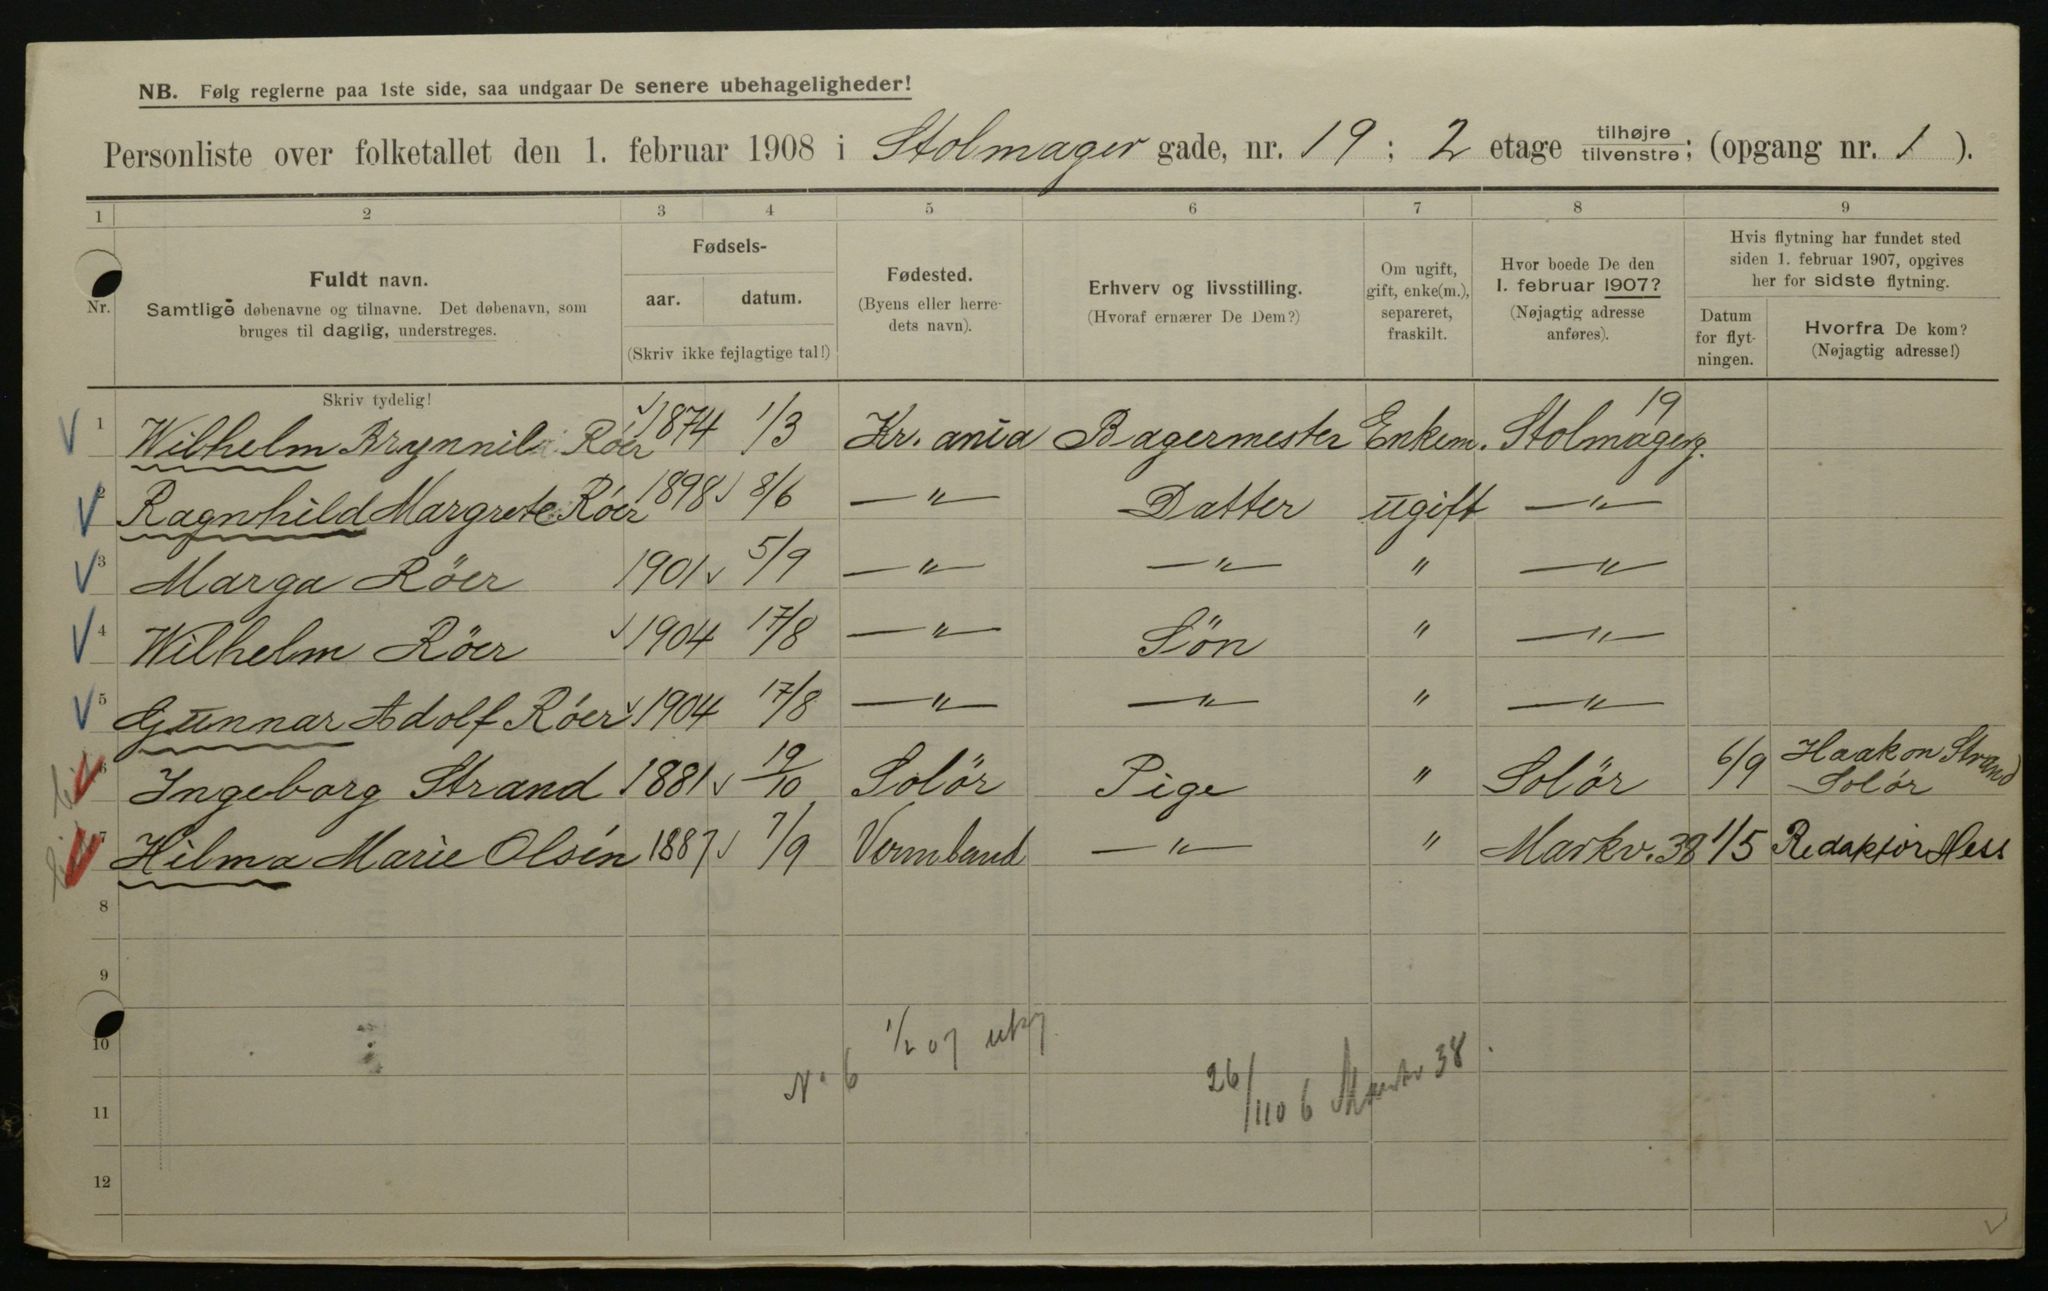 NB. Følg reglerne paa 1ste side, saa undgaar De senere ubehageligheder!
Personliste over folketallet den 1. februar 1908 i Stolmager gade, nr. 19 ; 2 etage tilhøjre/tilvenstre; (opgang nr. 1 ).
1 2 3 4 5 6 7 8 9
Nr.
Fuldt navn.
Samtlige døbenavne og tilnavne. Det døbenavn, som
bruges til daglig, understreges.
Fødsels-
aar. datum.
(Skriv ikke fejlagtige tal!)
Fødested.
(Byens eller herre-
dets navn).
Erhverv og livsstilling.
(Hvoraf ernærer De Dem?)
Om ugift,
gift, enke(m.),
separeret,
fraskilt.
Hvor boede De den
1. februar 1907?
(Nøjagtig adresse
anføres).
Hvis flytning har fundet sted
siden 1. februar 1907, opgives
her for sidste flytning.
Datum
for flyt-
ningen.
Hvorfra De kom?
(Nøjagtig adresse!)
Skriv tydelig!
1 Wilhelm Röer 1874 1/3 Kr. ania Bagermester Enkem. Stolmagerg. 19
2 Ragnhild Margrete Röer 1898 8/6 —"— Datter ugift —"—
3 Marga Röer 1901 5/9 —"— —"— " —"—
4 Wilhelm Röer 1904 17/8 —"— Sön " —"—
5 Gunnar Adolf Röer 1904 17/8 —"— —"— " —"—
6 Ingeborg Strand 1881 19/10 Solör Pige " Solör 6/9 Haakon Strand
Solör
7 Hilma Marie Olsen 1887 7/9 —"— " Markv. 38 1/5 Redaktör
8
9
10
11
12
1/2 07
N° 6
26/11 06 Markv 38